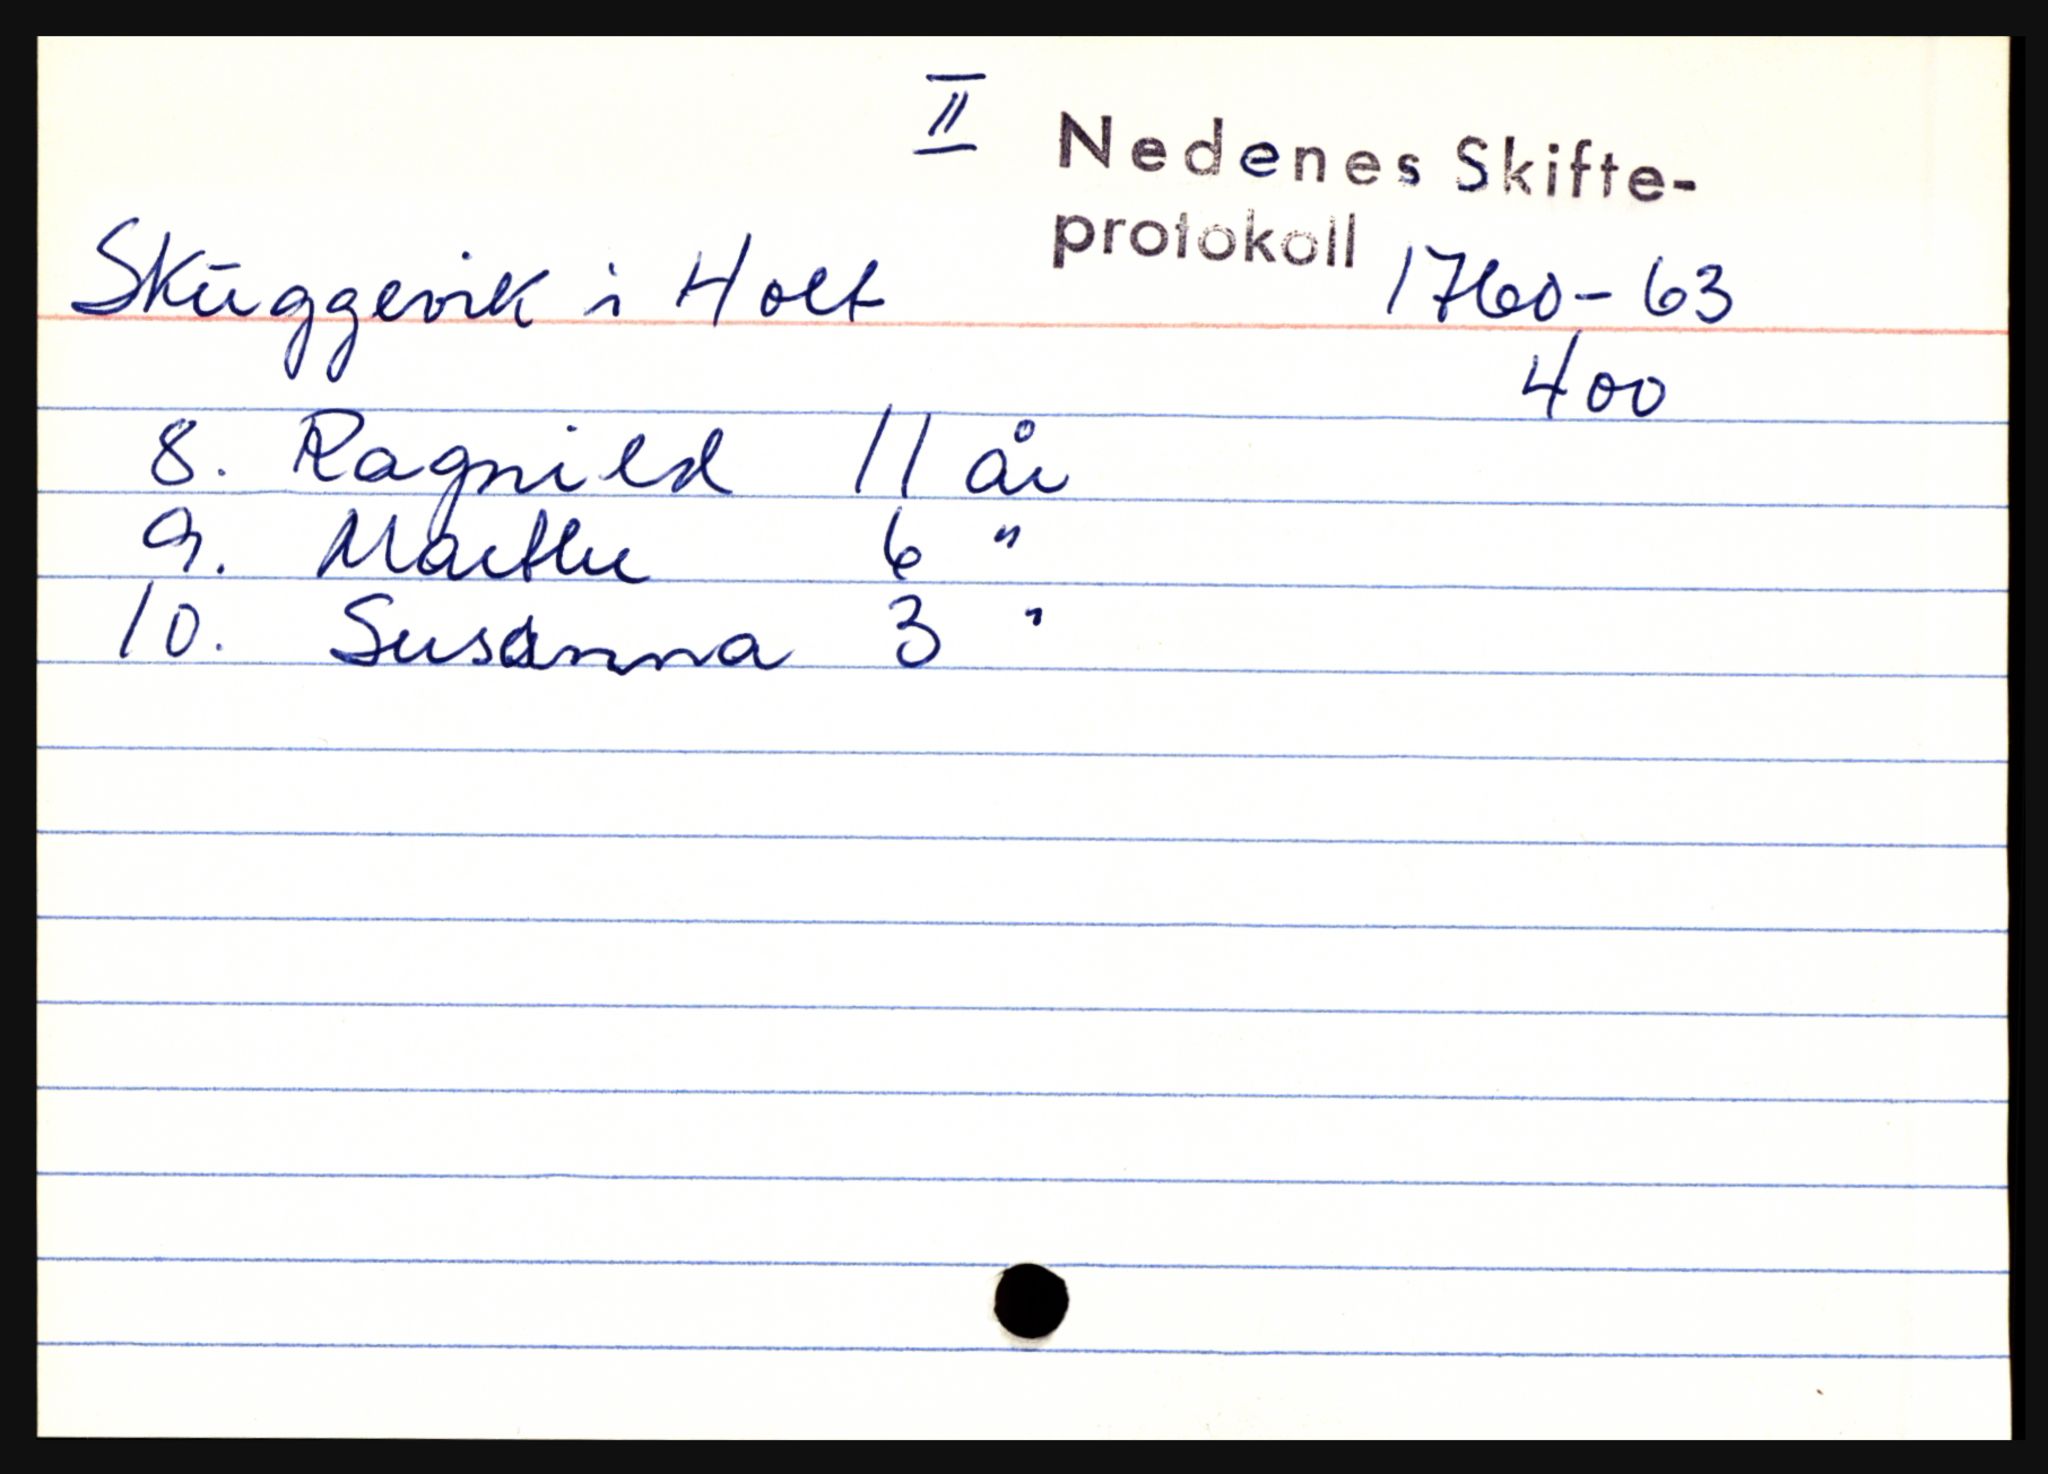 II
Nedenes Skifte-
protokoll
Skuggevik i Holt 1760-63
400
8. Ragnild 11 år
9. Marthe 6 "
10. Susanna 3 "